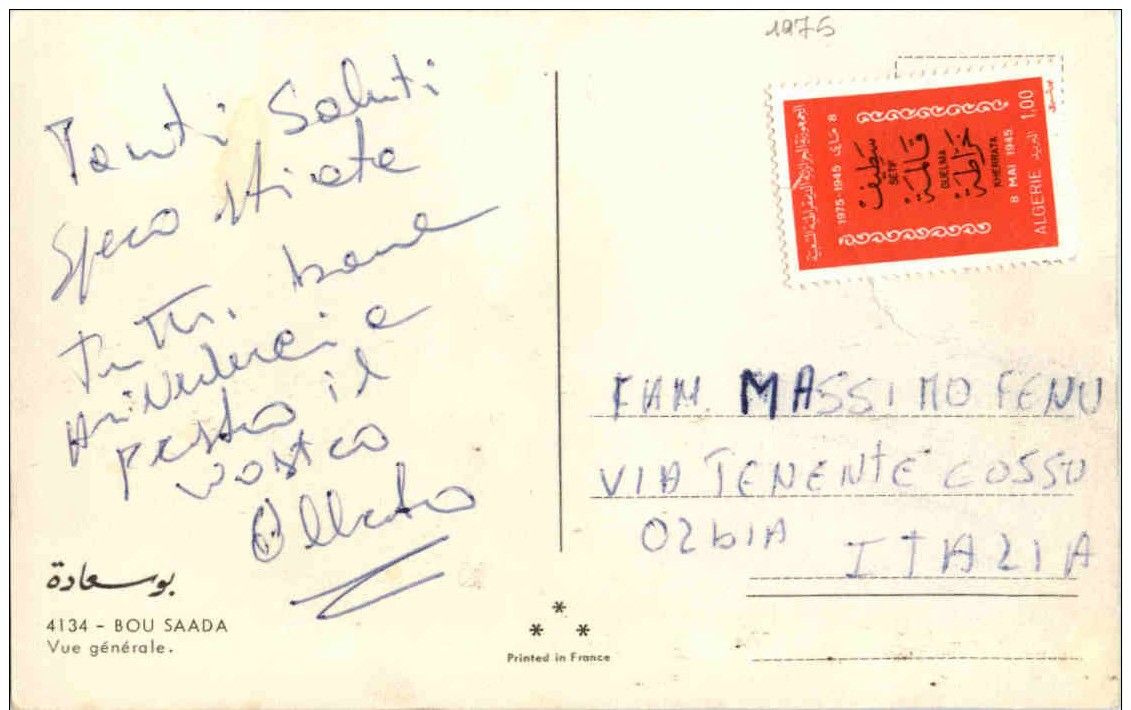 1975
Tanti Saluti
Spero stiate
tutti bene
arrivederci a
presto il
vostro
Alberto
بوسعادة
4134 - BOU SAADA
Vue générale.
***
Printed in France
الجمهورية الجزائرية الديمقراطية الشعبية
8 ماي 1945-1975
سطيف
SETIF
قالمة
GUELMA
خراطة
KHERRATA
8 MAI 1945
ALGERIE البريد 1.00
FAM. MASSIMO FENU
VIA TENENTE COSSU
OLbIA
ITALIA